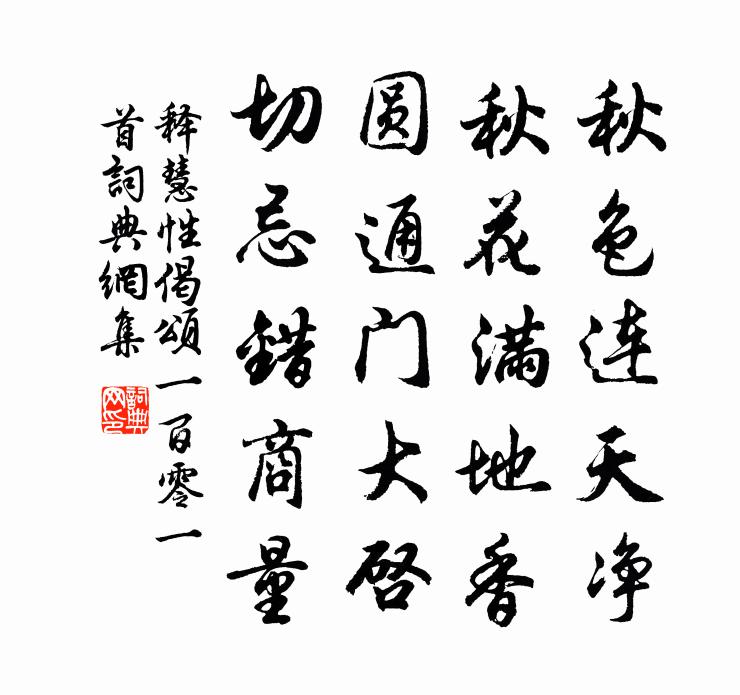 秋色连天净
秋花满地香
圆通门大启
切忌錯商量
释慧性偈頌一百零一
首詞典網集
詞典
网印